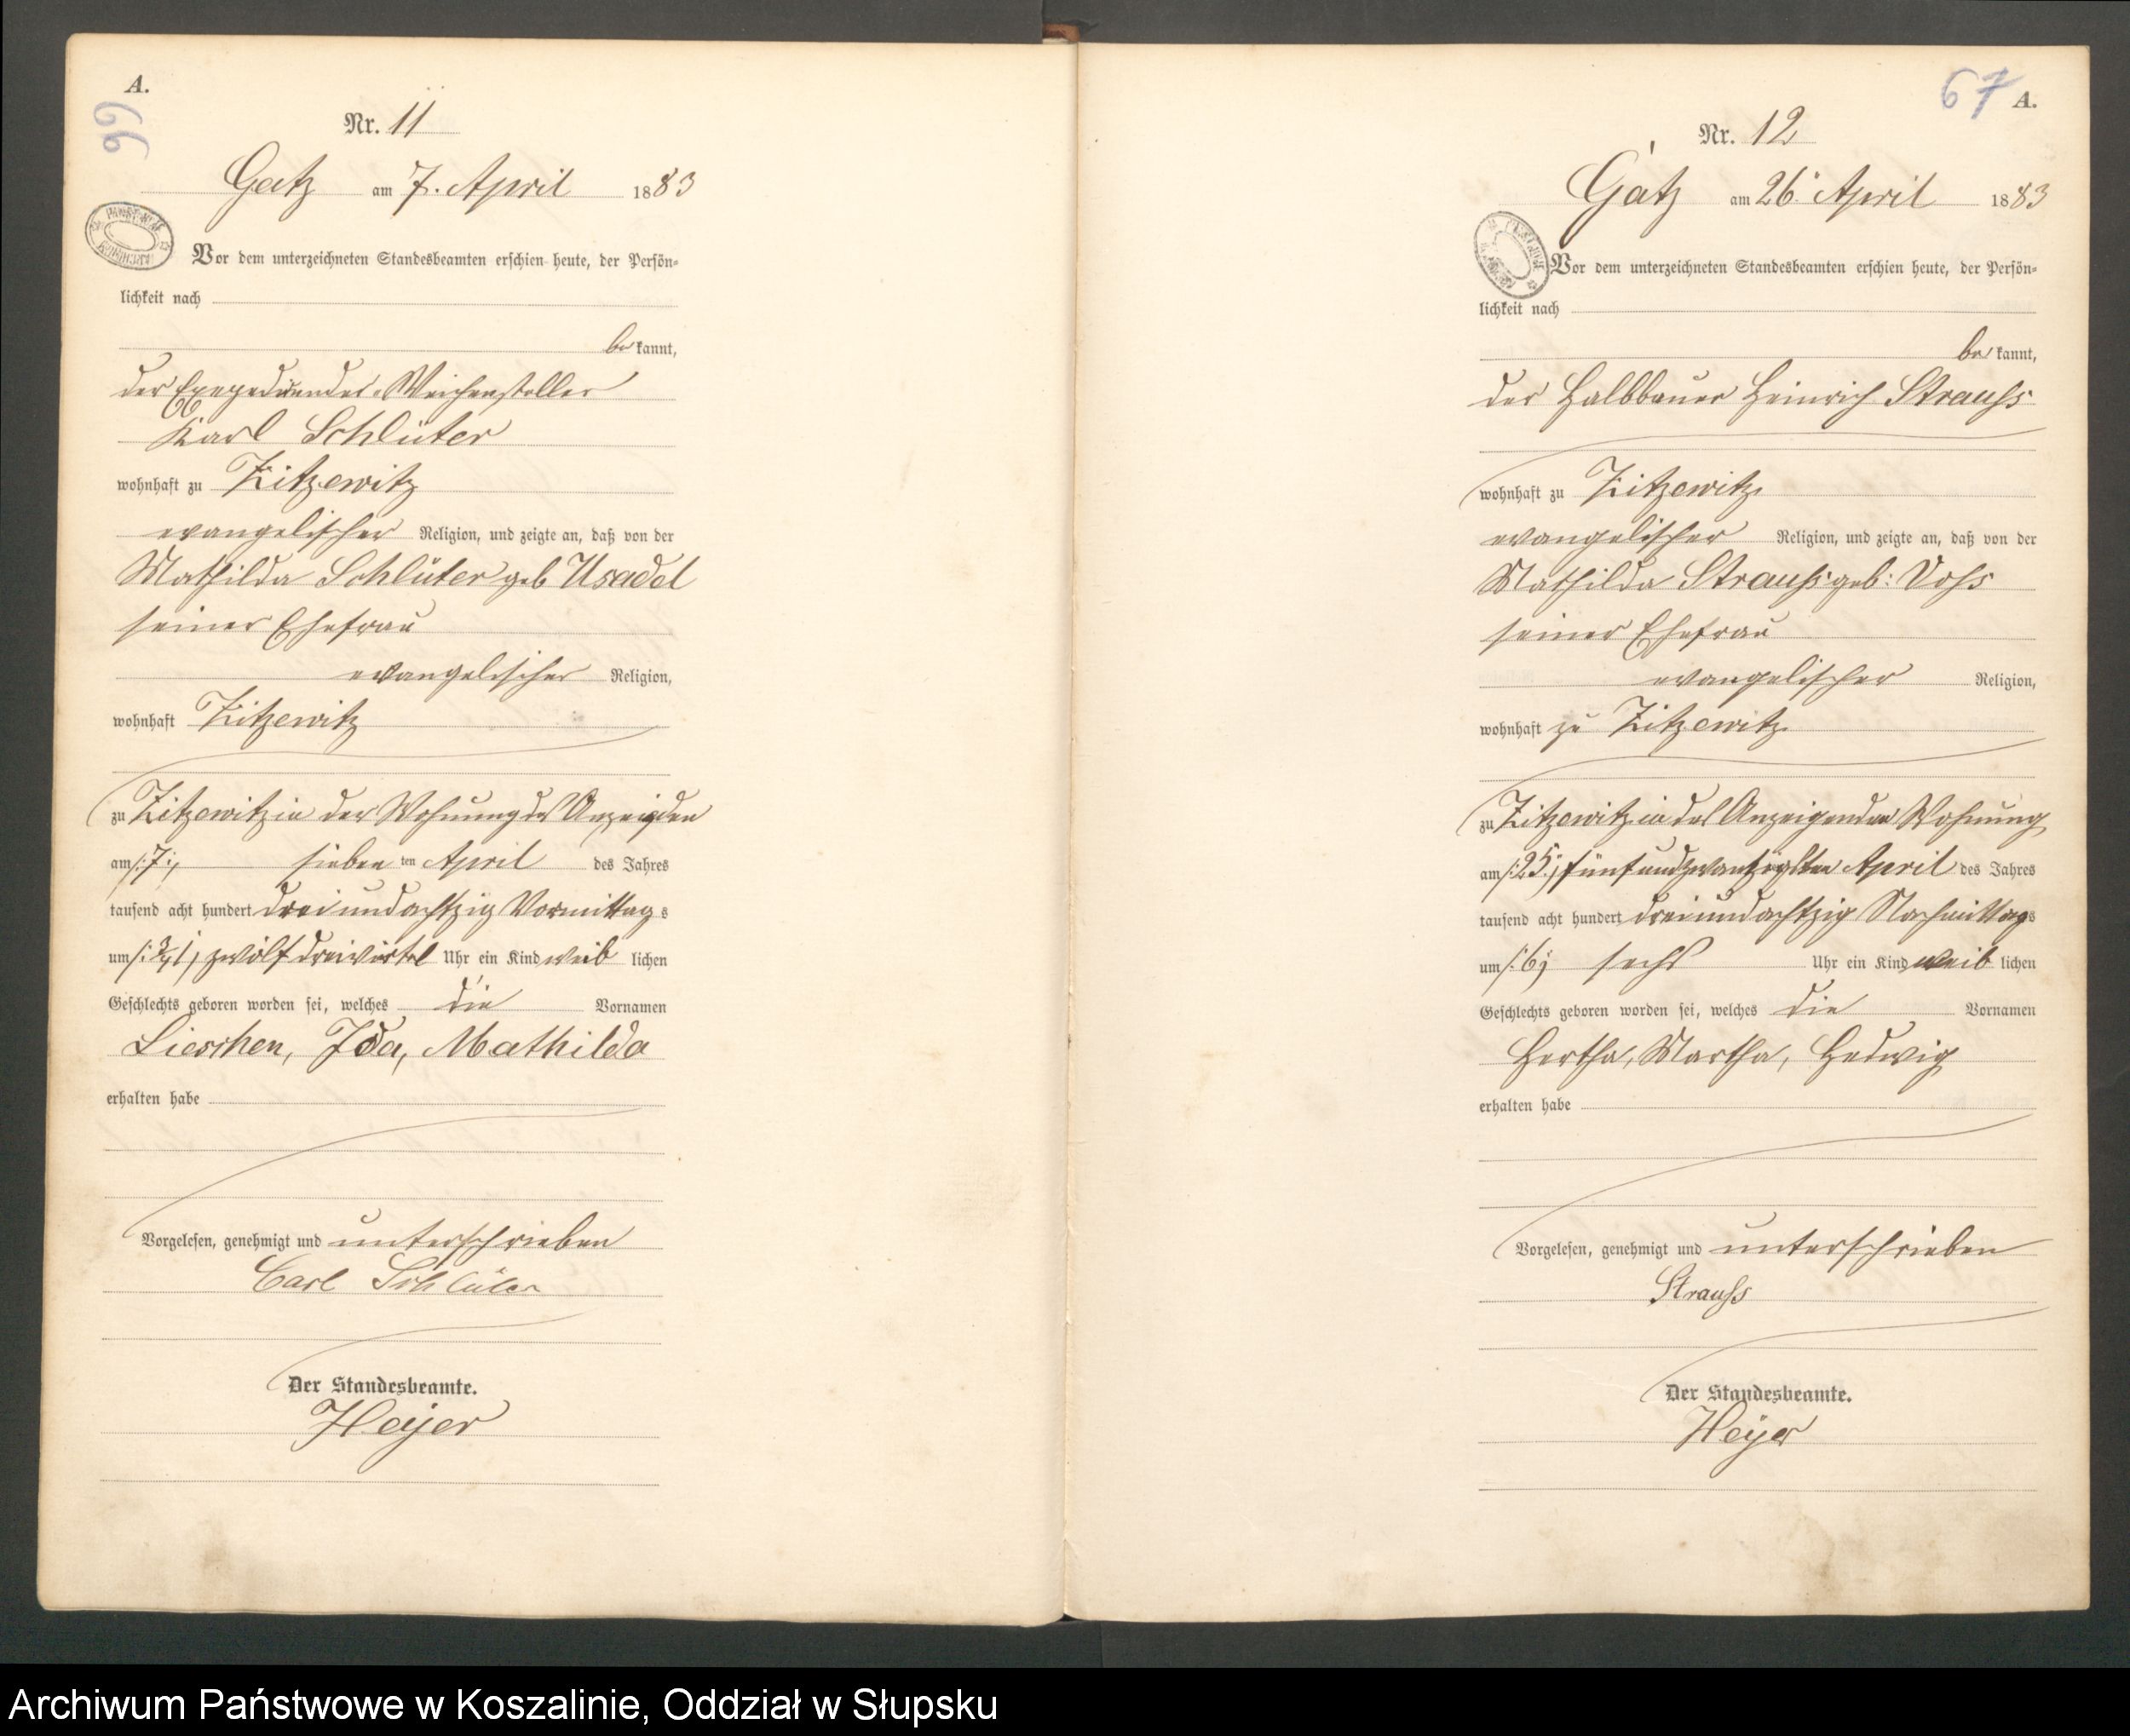 A.
66
Nr. 11
Gatz am 7. April 1883
Vor dem unterzeichneten Standesbeamten erschien heute, der Persön-
lichkeit nach
be kannt,
der Weichensteller
Karl Schlüter
wohnhaft zu Zitzewitz
evangelischer Religion, und zeigte an, daß von der
Mathilda Schlüter geb Usadel
seiner Ehefrau
evangelischer Religion,
wohnhaft Zitzewitz
zu Zitzewitz in der Wohnung des Anzeigden
am /:7:/ sieben ten April des Jahres
tausend acht hundert dreiundachtzig Vormittag s
um /: ¾1 :/ zwölf dreiviertel Uhr ein Kind weib lichen
Geschlechts geboren worden sei, welches die Vornamen
Lieschen, Ida, Mathilda
erhalten habe
Vorgelesen, genehmigt und unterschrieben
Carl Schlüter
Der Standesbeamte.
Heyer
67 A.
Nr. 12
Gatz am 26. April 1883
Vor dem unterzeichneten Standesbeamten erschien heute, der Persön-
lichkeit nach
be kannt,
der Halbbauer Heinrich Strauss
wohnhaft zu Zitzewitz
evangelischer Religion, und zeigte an, daß von der
Mathilda Strauss geb: Voss
seiner Ehefrau
evangelischer Religion,
wohnhaft zu Zitzewitz
zu Zitzewitz in des Anzeigenden Wohnung
am /:25:/ fünfundzwanzigsten April des Jahres
tausend acht hundert dreiundachtzig Nachmittag s
um /:6:/ sechs Uhr ein Kind weib lichen
Geschlechts geboren worden sei, welches die Vornamen
Hertha, Martha, Hedwig
erhalten habe
Vorgelesen, genehmigt und unterschrieben
Strauss
Der Standesbeamte.
Heyer
Archiwum Państwowe w Koszalinie, Oddział w Słupsku